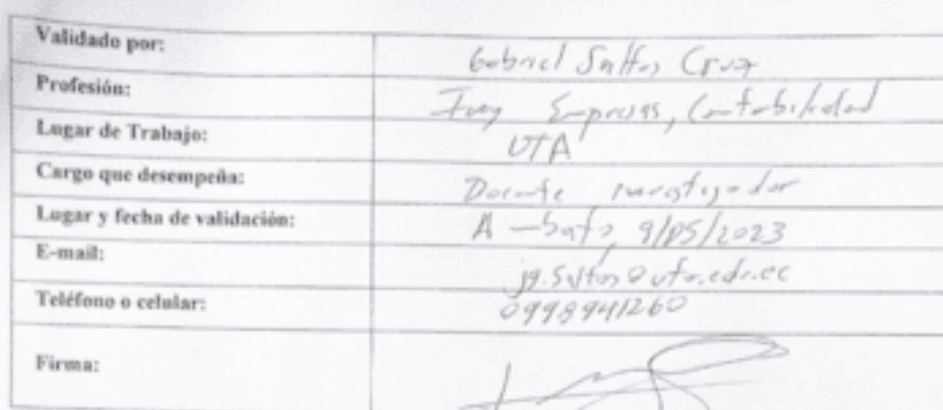 Validado por: Gabriel Saltos Cruz
Profesión: Ing Empresas, Contabilidad
Lugar de Trabajo: UTA
Cargo que desempeña: Docente investigador
Lugar y fecha de validación: Ambato, 9/05/2023
E-mail: jg.saltos@uta.edu.ec
Teléfono o celular: 0998941260
Firma: